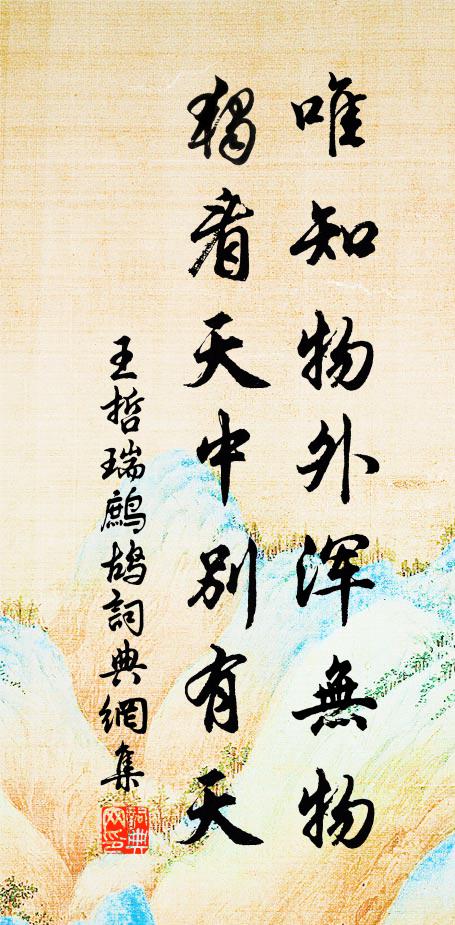 唯知物外浑無物
獨看天中別有天
王哲瑞鷓鴣詞典網集
詞典